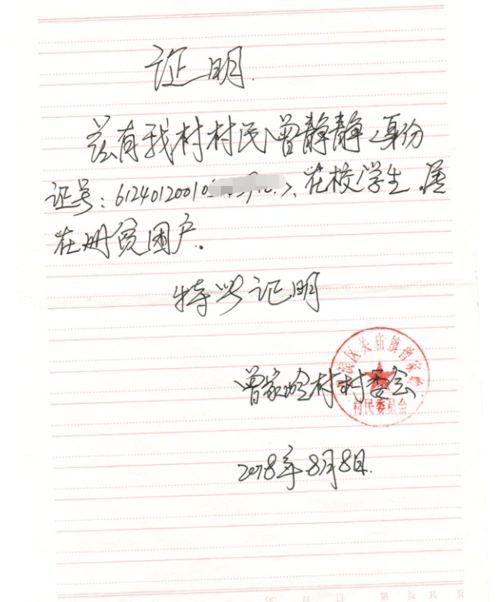 证明
兹有我村村民曾静静,身份
证号:61240120010 在校学生,属
在册贫困户。
特此证明
曾家岭村村委会
村民委员会
2018年8月8日.